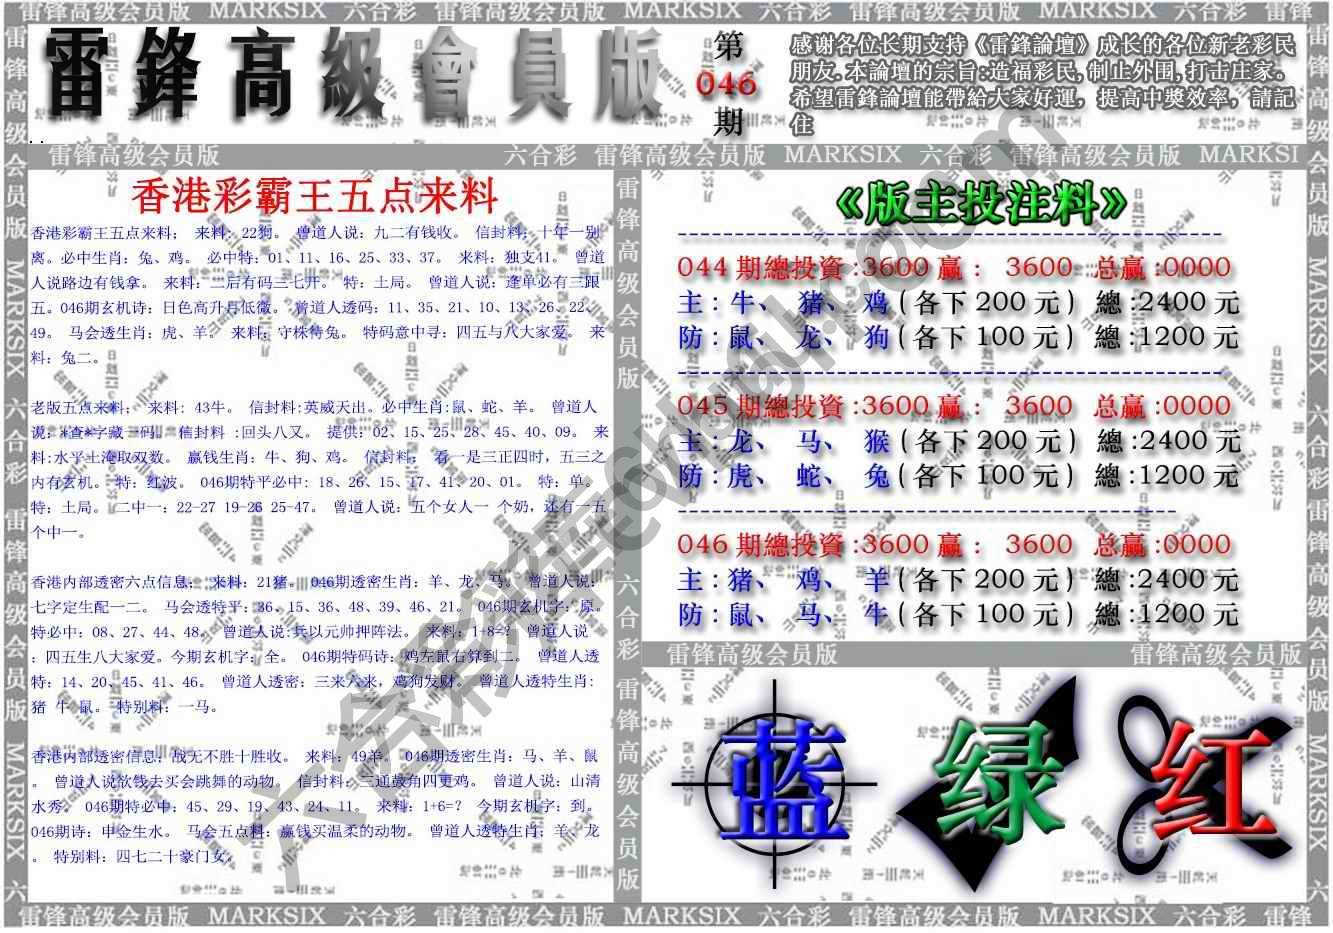 雷锋高级会员版 MARKSIX 六合彩 雷锋高级会员版 MARKSIX 六合彩 雷锋高级会员版 MARKSIX 六合彩 雷锋
雷鋒高級會員版
第
046
期
感谢各位长期支持《雷鋒論壇》成长的各位新老彩民
朋友.本論壇的宗旨:造福彩民,制止外围,打击庄家。
希望雷鋒論壇能帶給大家好運，提高中獎效率，請記
住
雷锋高级会员版 六合彩 雷锋高级会员版 MARKSIX 六合彩 雷锋高级会员版 MARKSI
雷锋高级会员版 MARKSIX 六合彩 雷锋高级会员版 MARKSIX 六
香港彩霸王五点来料
香港彩霸王五点来料； 来料: 22狗。 曾道人说: 九二有钱收。 信封料: 十年一别
离。必中生肖: 兔、鸡。 必中特: 01、11、16、25、33、37。 来料: 独支41。 曾道
人说路边有钱拿。 来料: 二后有码三七开。 特: 土局。 曾道人说: 逢单必有三跟
五。046期玄机诗: 日色高升月低微。 曾道人透码: 11、35、21、10、13、26、22、
49。 马会透生肖: 虎、羊。 来料: 守株待兔。 特码意中寻: 四五与八大家爱。 来
料: 兔二。
老版五点来料； 来料: 43牛。 信封料:英威天出。必中生肖:鼠、蛇、羊。 曾道人
说: *查*字藏一码。 信封料 :回头八又。 提供: 02、15、25、28、45、40、09。 来
料:水平土淹取双数。 赢钱生肖: 牛、狗、鸡。 信封料： 看一是三正四时，五三之
内有玄机。 特: 红波。 046期特平必中: 18、26、15、17、41、20、01。 特: 单。
特: 土局。 二中一: 22-27 19-26 25-47。 曾道人说: 五个女人一 个奶，还有一五
个中一。
香港内部透密六点信息； 来料: 21猪。 046期透密生肖: 羊、龙、马。 曾道人说:
七字定生配一二。 马会透特平: 36、15、36、48、39、46、21。 046期玄机字: 原。
特必中: 08、27、44、48。 曾道人说:兵以元帅押阵法。 来料: 1+8=? 曾道人说
: 四五生八大家爱。今期玄机字: 全。 046期特码诗: 鸡左鼠右算到二。 曾道人透
特: 14、20、45、41、46。 曾道人透密: 三来六来，鸡狗发财。 曾道人透特生肖:
猪 牛 鼠。 特别料: 一马。
香港内部透密信息；战无不胜十胜收。 来料: 49羊。 046期透密生肖: 马、羊、鼠
。 曾道人说依钱去买会跳舞的动物。 信封料: 三通鼓角四更鸡。 曾道人说: 山清
水秀。 046期特必中: 45、29、19、43、24、11。 来料: 1+6=? 今期玄机字: 到。
046期诗: 申金生水。 马会五点料: 赢钱买温柔的动物。 曾道人透特生肖: 羊、龙
。 特别料: 四七二十豪门女。
雷锋高级会员版 六合彩 雷锋高级会员版
《版主投注料》
044 期總投資 :3600 贏 : 3600 总赢 :0000
主 : 牛、 猪、 鸡 ( 各下 200 元 ) 總 :2400 元
防 : 鼠、 龙、 狗 ( 各下 100 元 ) 總 :1200 元
045 期總投資 :3600 贏 : 3600 总赢 :0000
主 : 龙、 马、 猴 ( 各下 200 元 ) 總 :2400 元
防 : 虎、 蛇、 兔 ( 各下 100 元 ) 總 :1200 元
046 期總投資 :3600 贏 : 3600 总赢 :0000
主 : 猪、 鸡、 羊 ( 各下 200 元 ) 總 :2400 元
防 : 鼠、 马、 牛 ( 各下 100 元 ) 總 :1200 元
雷锋高级会员版 雷锋高级会员版
蓝 绿 红
雷锋高级会员版 MARKSIX 六合彩 雷锋高级会员版 MARKSIX 六
雷锋高级会员版 MARKSIX 六合彩 雷锋高级会员版 MARKSIX 六合彩 雷锋高级会员版 MARKSIX 六合彩 雷锋